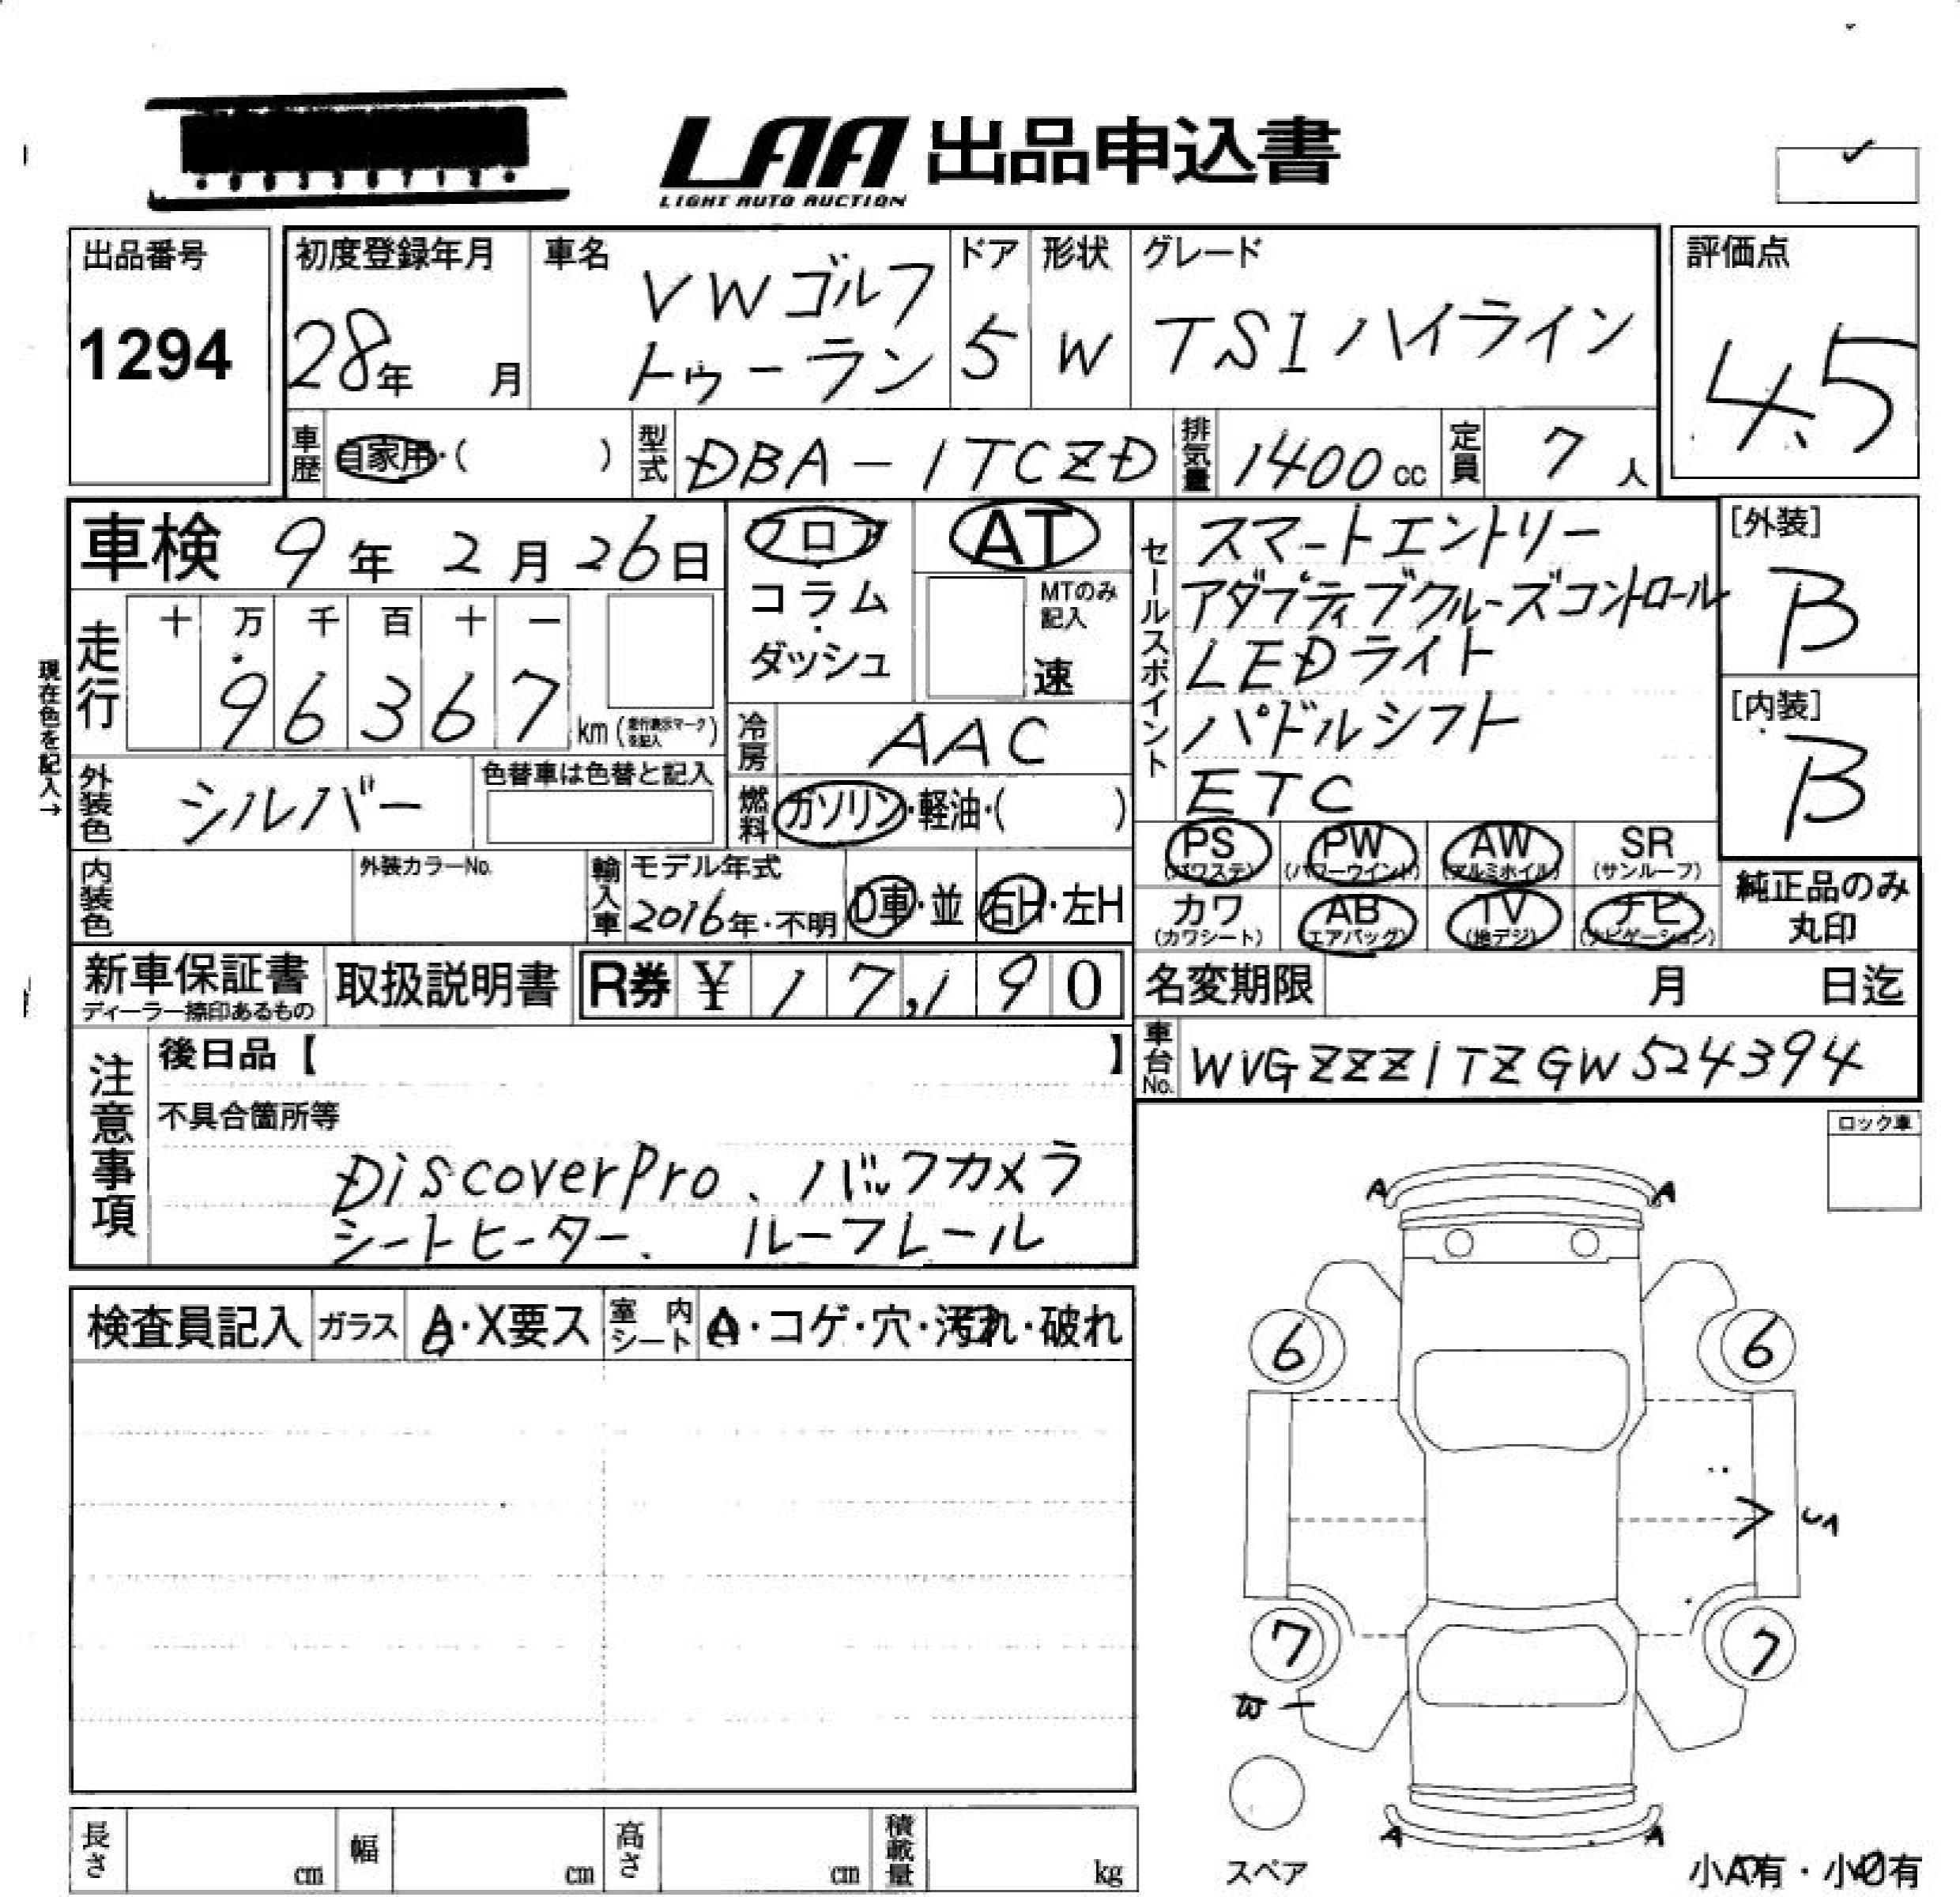 LAA 出品申込書
LIGHT AUTO AUCTION
出品番号
1294
初度登録年月
28年 月
車名
VWゴルフ
トゥーラン
ドア
5
形状
W
グレード
TSIハイライン
評価点
4.5
車歴 自家用・( )
型式 DBA-1TCZD
排気量 1400cc
定員 7人
車検 9年2月26日
フロア
コラム
ダッシュ
AT
MTのみ
記入
速
セールスポイント
スマートエントリー
アダプティブクルーズコントロール
LEDライト
パドルシフト
ETC
[外装]
B
[内装]
B
現在色を記入→
走行
十 万 千 百 十 一
9 6 3 6 7 km(走行表示マークを記入)
冷房 AAC
外装色 シルバー
色替車は色替と記入
燃料 ガソリン・軽油・( )
PS
(パワステ)
PW
(パワーウインド)
AW
(アルミホイル)
SR
(サンルーフ)
カワ
(カワシート)
AB
(エアバッグ)
TV
(地デジ)
ナビ
(ナビゲーション)
純正品のみ
丸印
内装色
外装カラーNo.
輸入車
モデル年式
2016年・不明
D車・並
右H・左H
新車保証書
ディーラー捺印あるもの
取扱説明書
R券 ¥ 17,190
名変期限 月 日迄
車台No. WVGZZZ1TZGW524394
注意事項
後日品【 】
不具合箇所等
DiscoverPro、バックカメラ
シートヒーター、ルーフレール
ロック車
検査員記入
ガラス A・X要ス
室内シート
・コゲ・穴・汚れ・破れ
A A
6 6
7 7
A A
スペア
小A有・小 有
長さ cm
幅 cm
高さ cm
積載量 kg